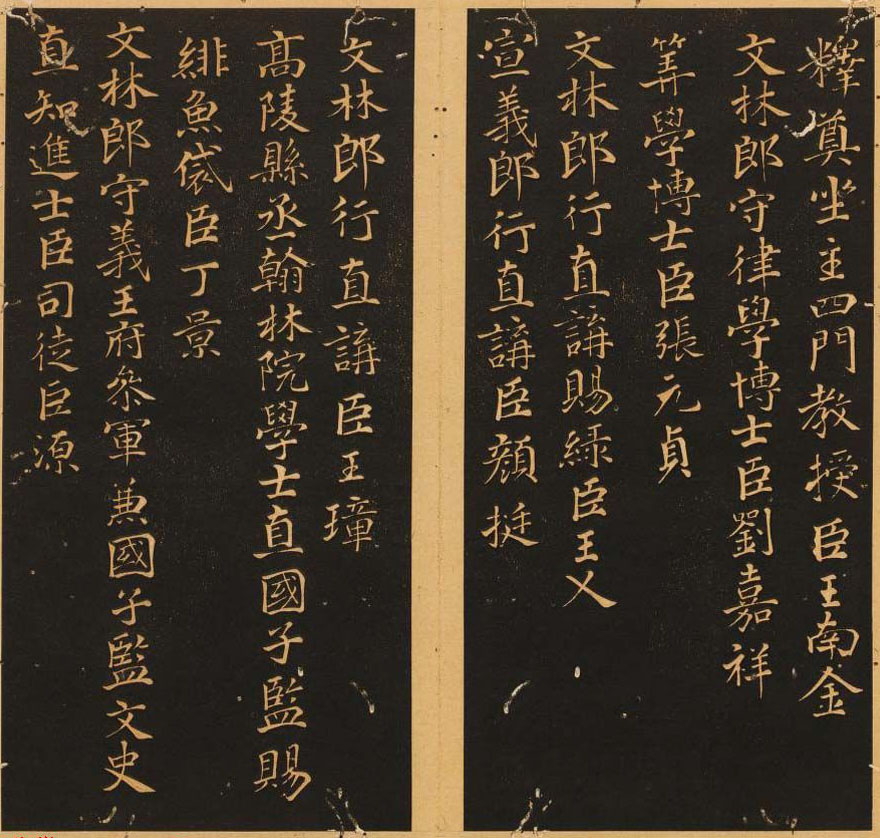 釋奠坐主四門教授臣王南金
文林郎守律學博士臣劉嘉祥
筭學博士臣張元貞
文林郎行直講賜緑臣王乂
宣義郎行直講臣顏挺
文林郎行直講臣王璋
高陵縣丞翰林院學士直國子監賜
緋魚袋臣丁景
文林郎守義王府叅軍兼國子監文史
直知進士臣司徒臣源